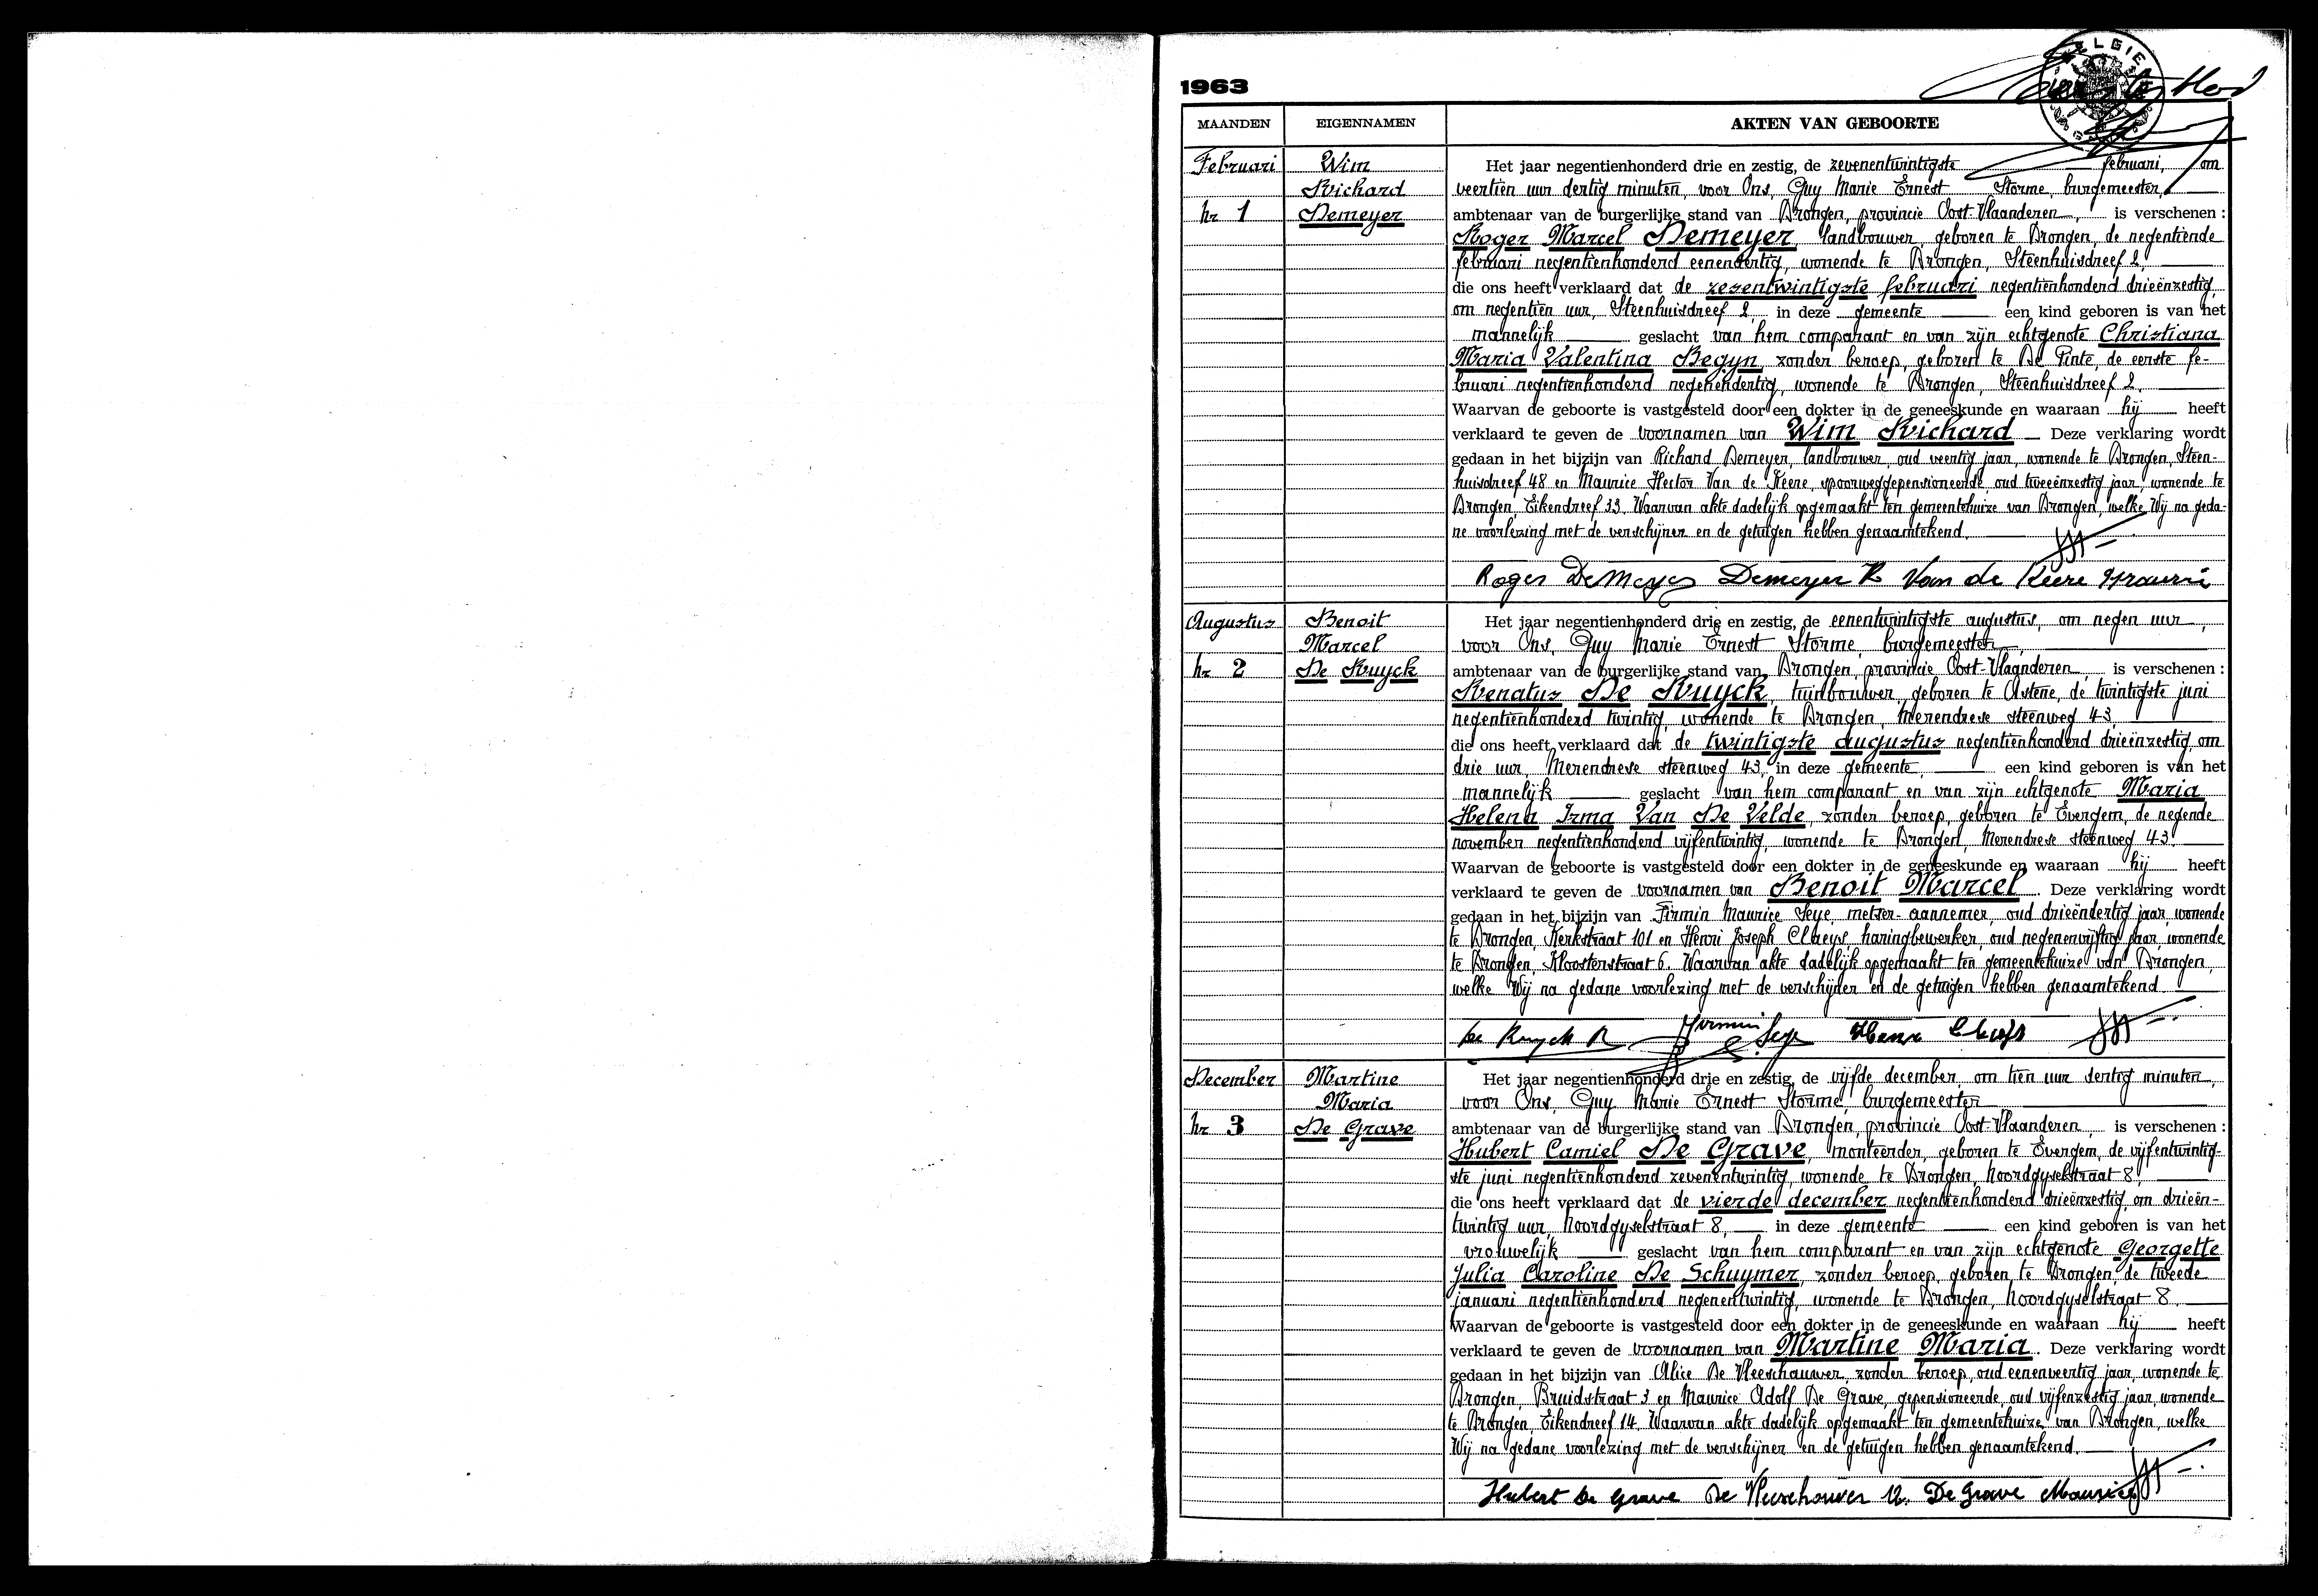 1963
BELGIE
MAANDEN EIGENNAMEN AKTEN VAN GEBOORTE
Februari
nr 1
Wim
Richard
Demeyer
Het jaar negentienhonderd drie en zestig, de zevenentwintigste februari, om
veertien uur dertig minuten, voor Ons, Guy Marie Ernest Storme, burgemeester,
ambtenaar van de burgerlijke stand van Drongen, provincie Oost-Vlaanderen, is verschenen :
Roger Marcel Demeyer, landbouwer, geboren te Drongen, de negentiende
februari negentienhonderd eenendertig, wonende te Drongen, Steenhuisdreef 2,
die ons heeft verklaard dat de zesentwintigste februari negentienhonderd drieënzestig,
om negentien uur, Steenhuisdreef 2, in deze gemeente een kind geboren is van het
mannelijk geslacht van hem comparant en van zijn echtgenote Christiana
Maria Valentina Begyn, zonder beroep, geboren te De Pinte, de eerste fe-
bruari negentienhonderd negenendertig, wonende te Drongen, Steenhuisdreef 2.
Waarvan de geboorte is vastgesteld door een dokter in de geneeskunde en waaraan hij heeft
verklaard te geven de voornamen van Wim Richard Deze verklaring wordt
gedaan in het bijzijn van Richard Demeyer, landbouwer, oud veertig jaar, wonende te Drongen, Steen-
huisdreef 48 en Maurice Hector Van de Keere, spoorweggepensioneerde, oud tweeënzestig jaar, wonende te
Drongen, Eikendreef 33. Waarvan akte dadelijk opgemaakt ten gemeentehuize van Drongen, welke Wij na geda-
ne voorlezing met de verschijner en de getuigen hebben genaamtekend.
Roger DeMeyer Demeyer R Van de Keere Maurice
Augustus
nr 2
Benoit
Marcel
De Ruyck
Het jaar negentienhonderd drie en zestig, de eenentwintigste augustus, om negen uur,
voor Ons, Guy Marie Ernest Storme, burgemeester,
ambtenaar van de burgerlijke stand van Drongen, provincie Oost-Vlaanderen, is verschenen :
Renatus De Ruyck, tuinbouwer, geboren te Astene, de twintigste juni
negentienhonderd twintig, wonende te Drongen, Merendrese steenweg 43,
die ons heeft verklaard dat de twintigste augustus negentienhonderd drieënzestig, om
drie uur, Merendrese steenweg 43, in deze gemeente, een kind geboren is van het
mannelijk geslacht van hem comparant en van zijn echtgenote Maria
Helena Irma Van De Velde, zonder beroep, geboren te Evergem, de negende
november negentienhonderd vijfentwintig, wonende te Drongen, Merendrese steenweg 43.
Waarvan de geboorte is vastgesteld door een dokter in de geneeskunde en waaraan hij heeft
verklaard te geven de voornamen van Benoit Marcel. Deze verklaring wordt
gedaan in het bijzijn van Firmin Maurice Seye, metser-aannemer, oud drieëndertig jaar, wonende
te Drongen, Kerkstraat 101 en Henri Joseph Claeys, haringbewerker, oud negenenvijftig jaar, wonende
te Drongen, Kloosterstraat 6. Waarvan akte dadelijk opgemaakt ten gemeentehuize van Drongen,
welke Wij na gedane voorlezing met de verschijner en de getuigen hebben genaamtekend.
De Ruyck R Firmin Seye Henri Claeys
December
nr 3
Martine
Maria
De Grave
Het jaar negentienhonderd drie en zestig, de vijfde december, om tien uur dertig minuten,
voor Ons, Guy Marie Ernest Storme, burgemeester
ambtenaar van de burgerlijke stand van Drongen, provincie Oost-Vlaanderen, is verschenen :
Hubert Camiel De Grave, monteerder, geboren te Evergem, de vijfentwintig-
ste juni negentienhonderd zevenentwintig, wonende te Drongen, Noordgyselstraat 8,
die ons heeft verklaard dat de vierde december negentienhonderd drieënzestig, om drieën-
twintig uur, Noordgyselstraat 8, in deze gemeente een kind geboren is van het
vrouwelijk geslacht van hem comparant en van zijn echtgenote Georgette
Julia Caroline De Schuymer, zonder beroep, geboren te Drongen, de tweede
januari negentienhonderd negenentwintig, wonende te Drongen, Noordgyselstraat 8.
Waarvan de geboorte is vastgesteld door een dokter in de geneeskunde en waaraan hij heeft
verklaard te geven de voornamen van Martine Maria. Deze verklaring wordt
gedaan in het bijzijn van Alice De Vleeschauwer, zonder beroep, oud eenenveertig jaar, wonende te
Drongen, Bruidstraat 3 en Maurice Adolf De Grave, gepensioneerde, oud vijfenzestig jaar, wonende
te Drongen, Eikendreef 14. Waarvan akte dadelijk opgemaakt ten gemeentehuize van Drongen, welke
Wij na gedane voorlezing met de verschijner en de getuigen hebben genaamtekend.
Hubert De Grave De Vleeschouwer A. De Grave Maurice